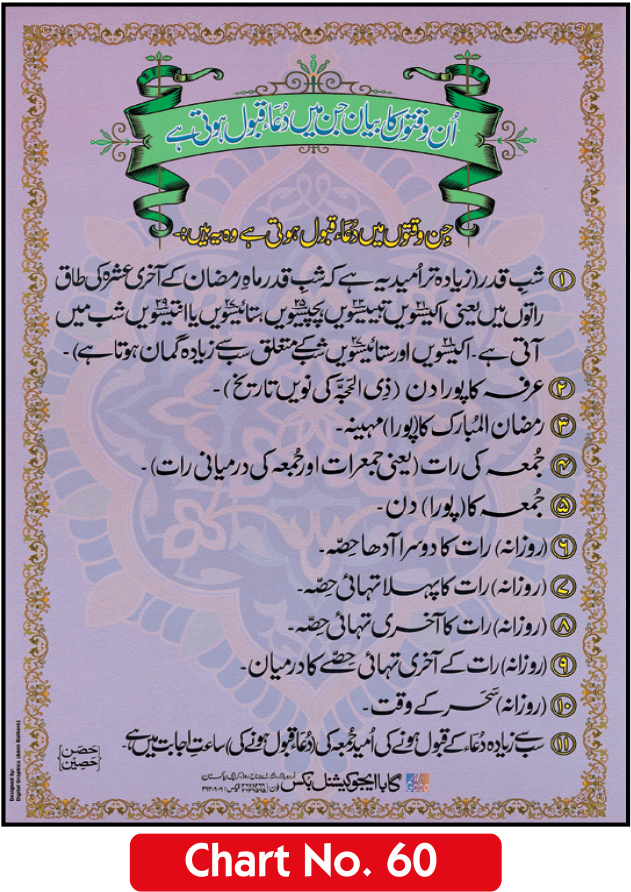 اُن وقتوں کا بیان جن میں دُعاء قبول ہوتی ہے
جن وقتوں میں دُعاء قبول ہوتی ہے وہ یہ ہیں:۔
۱ شبِ قدر (زیادہ تر اُمید یہ ہے کہ شبِ قدر ماہِ رمضان کے آخری عشرہ کی طاق
راتوں میں یعنی اکیسویں ۲۱ تیئیسویں ۲۳ پچیسویں ۲۵ ستائیسویں ۲۷ یا انتیسویں ۲۹ شب میں
آتی ہے۔ اکیسویں ۲۱ اور ستائیسویں ۲۷ شب کے متعلق سب سے زیادہ گمان ہوتا ہے)۔
۲ عرفہ کا پورا دن (ذِی الحِجَّہ کی نویں تاریخ)۔
۳ رمضان المُبارک کا (پورا) مہینہ۔
۴ جُمعہ کی رات (یعنی جمعرات اور جُمعہ کی درمیانی رات)۔
۵ جُمعہ کا (پورا) دن۔
۶ (روزانہ) رات کا دوسرا آدھا حِصّہ۔
۷ (روزانہ) رات کا پہلا تہائی حِصّہ۔
۸ (روزانہ) رات کا آخری تہائی حِصّہ۔
۹ (روزانہ) رات کے آخری تہائی حِصّے کا درمیان۔
۱۰ (روزانہ) سَحَر کے وقت۔
۱۱ سب سے زیادہ دُعاء کے قبول ہونے کی اُمید جُمعہ کی (دُعاء قبول ہونے کی) ساعتِ اجابت میں ہے۔
{حِصنِ
حَصِین}
گابا ایجوکیشنل بکس
Gaba
Designed by:
Digital Graphics (Amin Rathore)
Chart No. 60